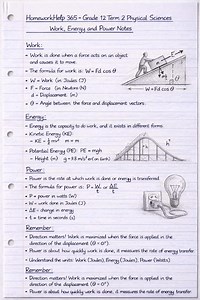 HomeworkHelp 365 - Grade 12 Term 2 Physical Sciences
Work, Energy and Power Notes
Work:
- Work is done when a force acts on an object
and causes it to move.
- The formula for work is: W = Fd cos θ
- W = Work (in Joules (J)
- F = Force (in Newtons (N)
- d = Displacement (m)
- θ = Angle between the force and displacement vectors.
W = Fd cos θ
Energy:
- Energy is the capacity to do work, and it exists in different forms:
- Kinetic Energy (KE)
- KE = ½ mv²
- Potential Energy (PE) PE = mgh
- Height (m)
Power:
- Power is the rate at which work is done or energy is transferred
- The formula for power is: P = W/t or ΔE/t
- P = power in watts (w)
- W = work done in Joules (J)
- ΔE = change in energy
- t = time in seconds (s)
Remember:
- Direction matters! Work is maximized when the force is applied in the
direction of the displacement (θ = 0°).
- Power is about how quickly work is done, it measures the rate of energy transfer
- Understand the units: Work (Joules), Energy (Joules), Power (Watts)
Remember:
- Direction matters! Work is maximized when the force is applied in the
direction of the displacement (θ = 0°)
- Power is about how quickly work is done, it measures the rate of energy transfer